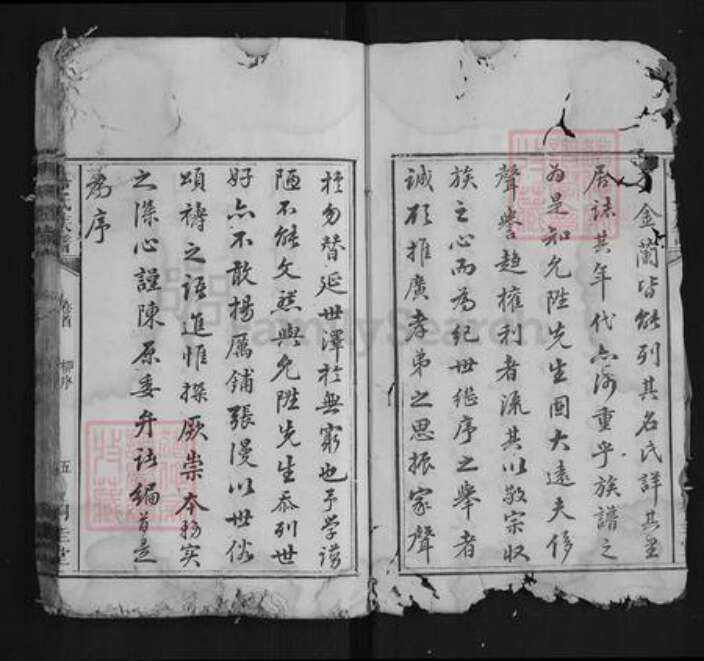 金蘭皆能列其名氏詳其里
居誌其年代亦何重乎族譜之
為是知允陞先生固大遠夫侈
聲譽趨權利者流其以敬宗收
族之心而為紀世繼序之舉者
誠欲推廣孝弟之思振家聲
於勿替延世澤於無窮也予学識
陋不能文然與允陞先生忝列世
好亦不敢揚厲鋪張漫以世俗
頌禱之語進惟探厥崇本務实
之深心謹陳原委弁諸编首是
為序
氏族譜
卷首
序
五
FamilySearch